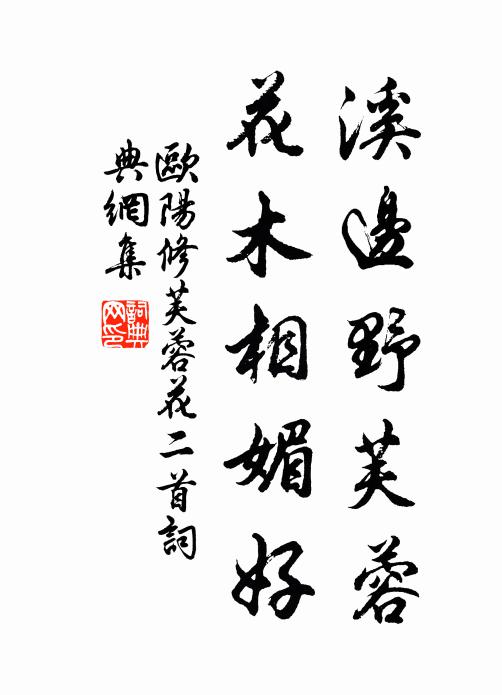 溪邊野芙蓉
花木相媚好
歐陽修芙蓉花二首詞
典網集
詞典
网印